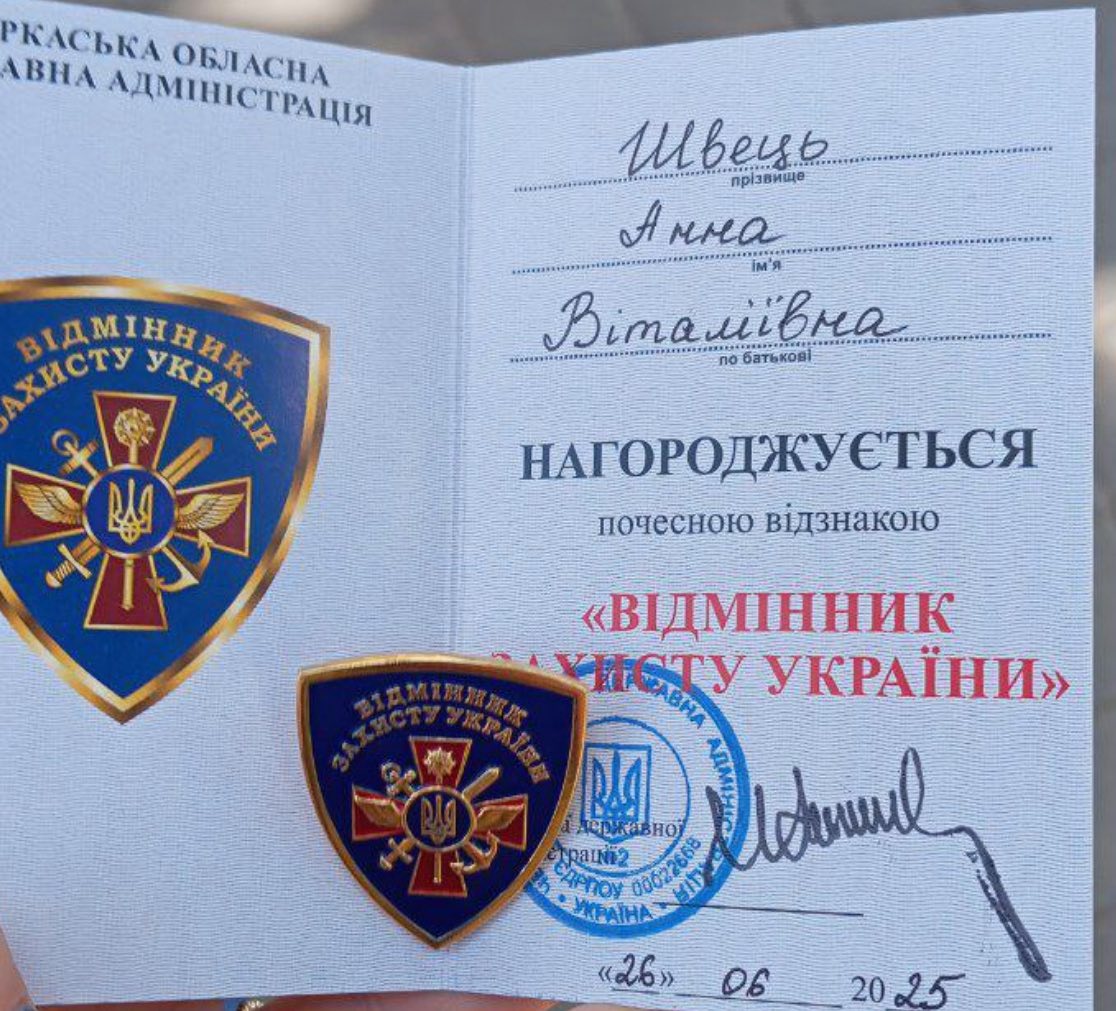 РКАСЬКА ОБЛАСНА
АВНА АДМІНІСТРАЦІЯ
ВІДМІННИК
ЗАХИСТУ УКРАЇНИ
Швець
прізвище
Анна
ім'я
Віталіївна
по батькові
НАГОРОДЖУЄТЬСЯ
почесною відзнакою
«ВІДМІННИК
ЗАХИСТУ УКРАЇНИ»
ВІДМІННИК
ЗАХИСТУ УКРАЇНИ
ДЕРЖАВНА АДМІНІСТРАЦІЯ
ЄДРПОУ 00022668
УКРАЇНА
№2
державної
страції
«26» 06 2025